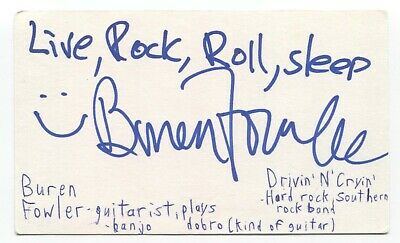 Live, Rock, Roll, sleep
Buren Fowler
Buren
Fowler - guitarist, plays
- banjo dobro (kind of guitar)
Drivin' N' Cryin'
- Hard rock, southern
rock band